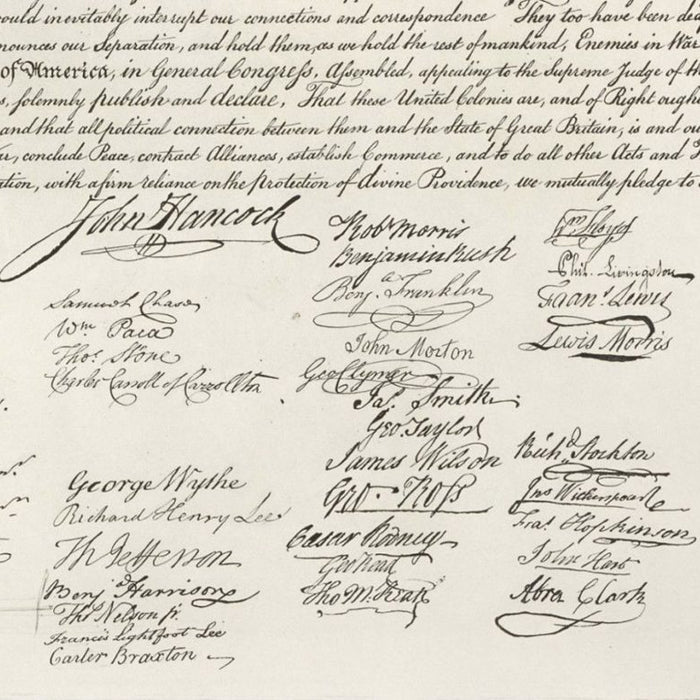 could inevitably interrupt our connections and correspondence They too have been
nounces our Separation, and hold them, as we hold the rest of mankind, Enemies in War
of America, in General Congress, Assembled, appealing to the Supreme Judge of
s, solemnly publish and declare, That these United Colonies are, and of Right ough
and that all political connection between them and the State of Great Britain, is and
conclude Peace, contract Alliances, establish Commerce, and to do all other Acts and
tion, with a firm reliance on the Protection of divine Providence, we mutually pledge to
John Hancock
Samuel Chase
Wm Paca
Thos. Stone
Charles Carroll of Carrollton
George Wythe
Richard Henry Lee
Th Jefferson
Benj. Harrison
Thos Nelson jr.
Francis Lightfoot Lee
Carter Braxton
Robt Morris
Benjamin Rush
Benj. Franklin
John Morton
Geo Clymer
Jas. Smith
Geo. Taylor
James Wilson
Geo. Ross
Caesar Rodney
Geo Read
Tho M:Kean
Wm Floyd
Phil. Livingston
Frans. Lewis
Lewis Morris
Richd. Stockton
Jno Witherspoon
Fras. Hopkinson
John Hart
Abra Clark